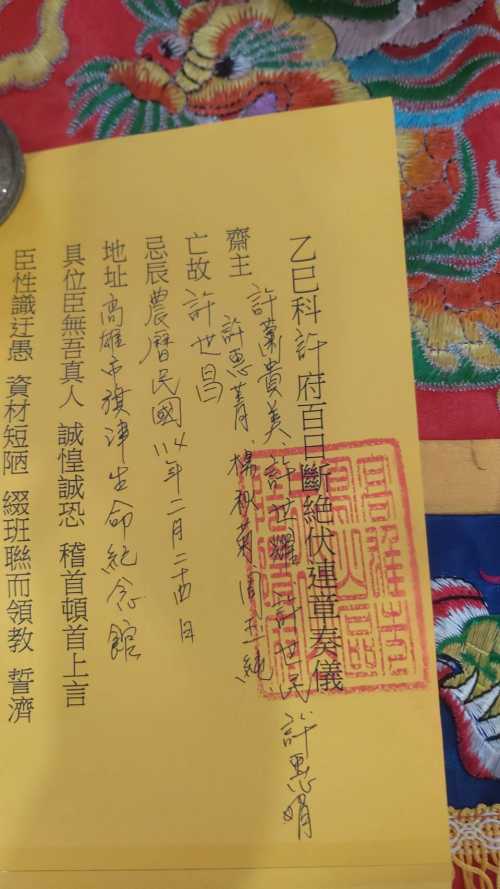 乙巳科許府百日斷絕伏連章奏儀
齋主 許蘭貴美、許世耀 許世民 許惠娟
許惠菁、楊秋菊 周玉純
亡故 許世昌
忌辰農曆民國114年二月二十四日
地址高雄市旗津生命紀念館
具位臣無吾真人 誠惶誠恐 稽首頓首上言
臣性識迂愚 資材短陋 綴班聯而領教 誓濟